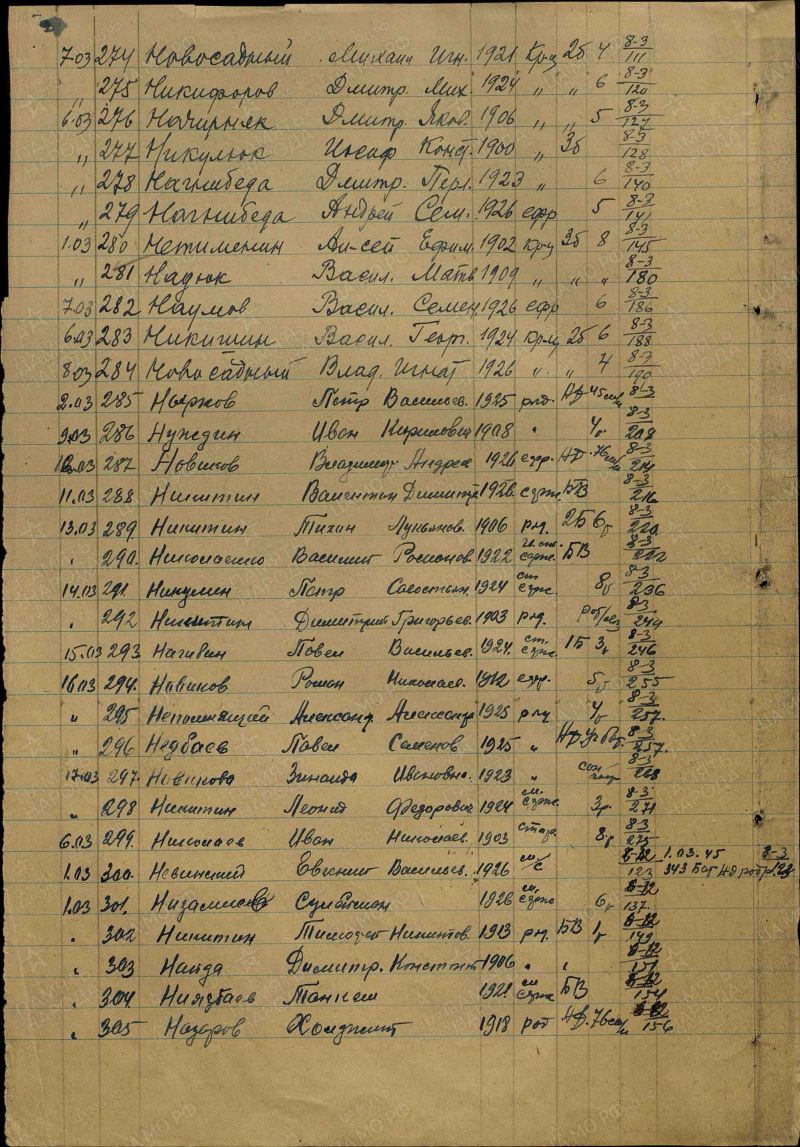 7.03 274 Новосадный Михаил Игн. 1921 Кр-ц 2б 4 8-3/111
„ 275 Никифоров Дмитр. Мих. 1924 „ „ 6 8-3/120
6.03 276 Дмитр. Яков. 1906 „ „ 5 8-3/127
„ 277 Никулюк Иосиф Конст. 1900 „ 3б 8-3/128
„ 278 Нагнибеда Дмитр. 1923 „ 6 8-3/140
„ 279 Нагнибеда Андрей Сем. 1926 ефр 5 8-3/141
1.03 280 Ал-сей Ефим. 1902 кр-ц 3б 8 8-3/145
„ 281 Надюк Васил. Матв. 1909 „ „ „ 8-3/180
7.03 282 Наумов Васил. Семен 1926 ефр 6 8-3/186
6.03 283 Никишин Васил. Георг. 1924 кр-ц 2б 6 8-3/188
8.03 284 Новосадный Влад. Игнат 1926 „ „ 4 8-3/190
2.03 285 Петр Васильев. 1925 ряд. 8-3
9.03 286 Нуждин Иван Кирилович 1908 „ 8-3/208
287 Новиков Владимир Андрее 1926 ефр. 8-3/214
11.03 288 Никитин Валентин Димитр 1926 серж БВ 8-3/216
13.03 289. Никитин Тихон Лукьянов. 1906 ряд. 2Б 6р 8-3/220
„ 290. Николаенко Василий 1922 серж. БВ 8-3/222
14.03 291 Никулин Петр Савостьян. 1924 ст. серж. 8р 8-3/236
„ 292 Никитин Димитрий Григорьев. 1903 ряд. 8-3/244
15.03 293 Павел Васильев. 1924. ст. серж. 1Б 3р 8-3/246
16.03 294. Новиков Роман Николаев. 1912 ефр. 5р 8-3/255
„ 295 Непомнящий Александ. Александр 1925 ряд 4р 8-3/257.
„ 296 Недбаев Павел Семенов 1925 „ 8-3/257.
17.03 297. Новикова Зинаида Ивановна. 1923 „ 8-3/268
„ 298 Никитин Леонид Федорович 1924 мл. серж. 3р. 8-3/271
6.03 299. Николаев Иван Николаев. 1903 стар. 8р 8-3/275
1.03 300. Невинский Евгений Васильев. 1926 м/с 8-12/123 1.03.45 8-3
1.03 301. Сулейман 1926 мл. серж 6р 8-12/137.
„ 302 Никитин Тимофей Никитов. 1913 ряд. БВ 1р 8-12/149
„ 303 Найда Димитр. Константин 1906 „ „ 8-12/151
„ 304 Ниязбаев 1921. мл серж БВ 8-12/154
„ 305 Назаров 1918 ряд 8-12/156